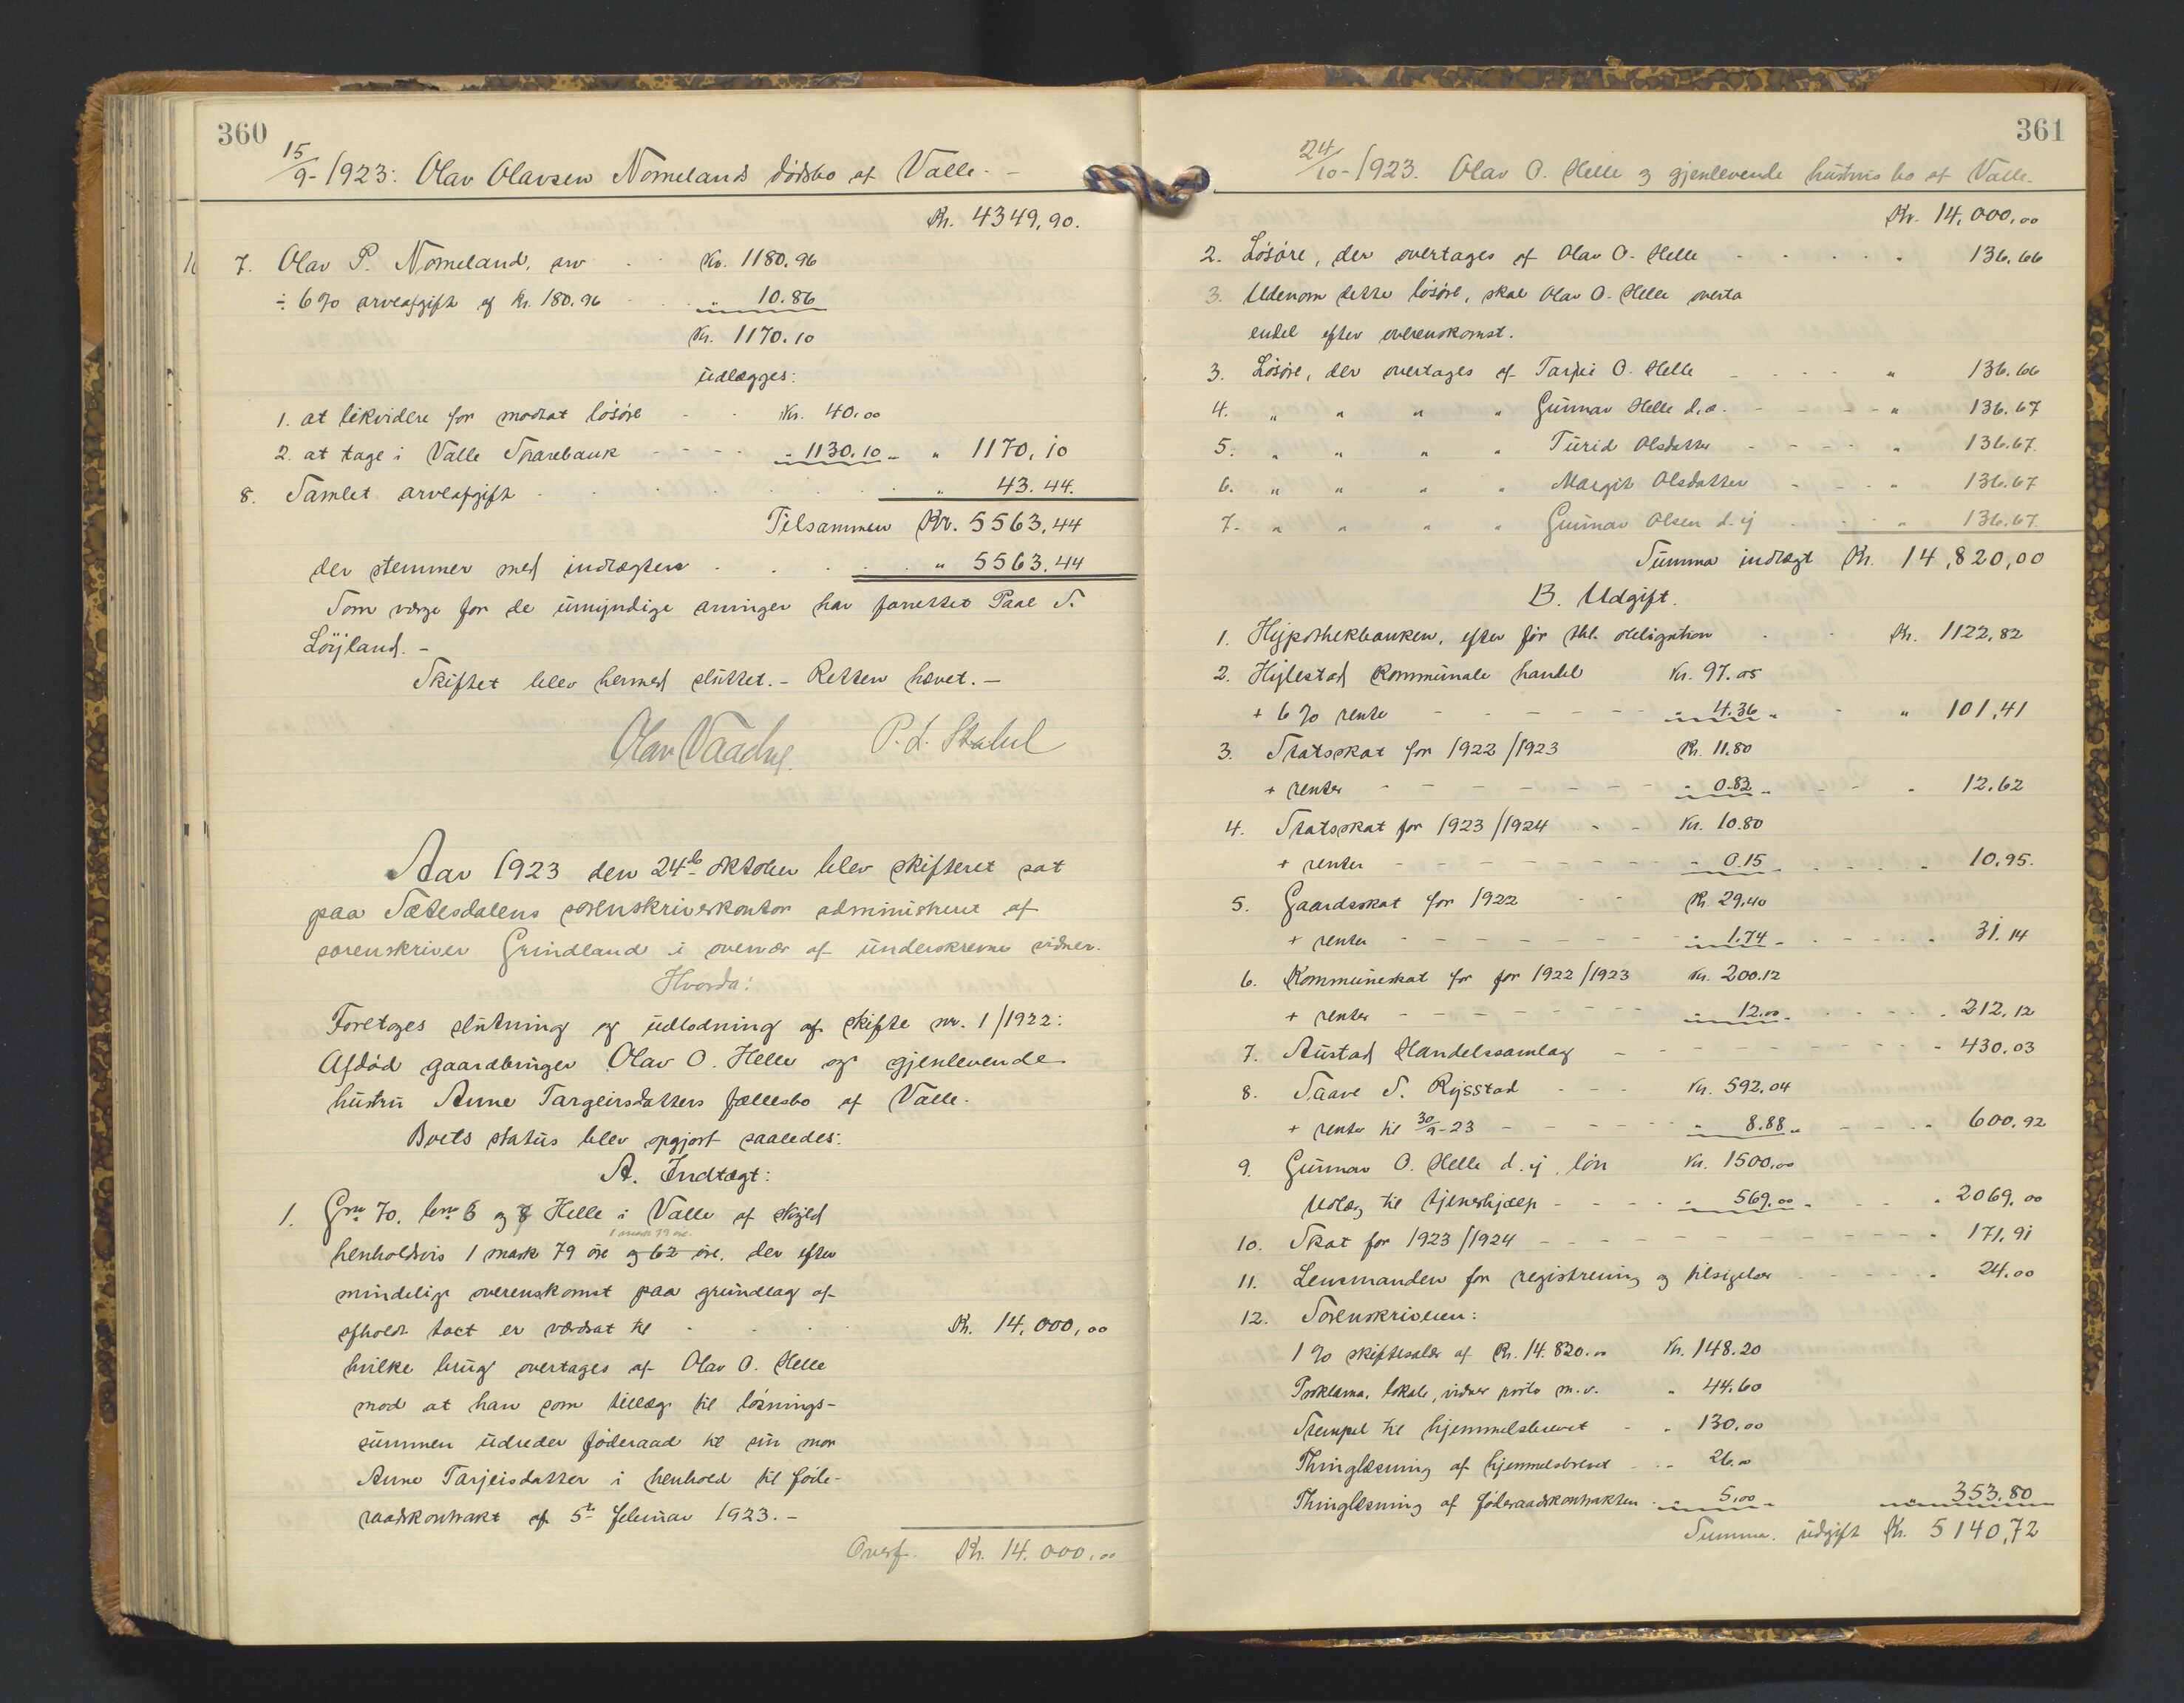 360
15/9-1923: Olav Olavsen Nomelands dødsbo af Valle. -
Kr. 4349,90.
7. Olav P. Nomeland, arv - - Kr. 1180.96
÷ 6% arveafgift af Kr. 180.96 - - " 10.86
Kr. 1170.10
udlægges:
1. at likvidere for modtat løsøre - - Kr. 40.00
2. at tage i Valle Sparebank - - - - " 1130.10 - " 1170,10
8. Samlet arveafgift - - - - - " 43.44.
Tilsammen Kr. 5563,44
der stemmer med indtægten - - - - " 5563,44
Som verge for de umyndige arvinger har forrettet Paal S.
Løyland. -
Skiftet blev hermed sluttet. - Retten hævet. -
Olav Vaadne. P. d. Stalul
Aar 1923 den 24de oktober blev skifteret sat
paa Sætesdalens sorenskriverkontor administreret af
sorenskriver Grindland i overvær af underskrevne vidner.
Hvorda:
Foretoges slutning og udlodning af skifte nr. 1/1922:
Afdød gaardbruger Olav O. Helle og gjenlevende
hustru Anne Targeirsdatters fællesbo af Valle.
Boets status blev opgjort saaledes:
A. Indtægt:
1. Gnr. 70. bnr. 6 og 8 Helle i Valle af skyld
1 mark 79 øre.
henholdsvis 1 mark 79 øre og 62 øre, der efter
mindelig overenskomst paa grundlag af
afholdt taxt er værdsat til - - - - Kr. 14,000,00
hvilke brug overtages af Olav O. Helle
mod at han som tillæg til løsnings-
summen udreder føderaad til sin mor
Anne Tarjeisdatter i henhold til føde-
raadskontrakt af 5te februar 1923. -
Overf. Kr. 14.000,00
361
24/10-1923. Olav O. Helle og gjenlevende hustrus bo af Valle.
Kr. 14,000,00
2. Løsøre, der overtages af Olav O. Helle - - - - " 136.66
3. Udenom dette løsøre, skal Olav O. Helle overta
endel efter overenskomst.
3. Løsøre, der overtages af Tarjei O. Helle - - - - " 136.66
4. " " " " Gunnar Helle d.e. - - - - " 136.67
5. " " " " Turid Olsdatter - - - - " 136.67.
6. " " " " Margit Olsdatter - - - " 136.67
7. " " " " Gunnar Olsen d. y - - " 136.67.
Summa indtægt Kr. 14,820,00
B. Udgift.
1. Hypothekbanken, efter før thl. obligation - - Kr. 1122,82
2. Hylestad kommunale handel Kr. 97.05
+ 6% rente - - - - - - " 4.36 - - " 101,41
3. Statsskat for 1922/1923 Kr. 11.80
+ renter - - - - - - - " 0.82 - - - " 12.62
4. Statsskat for 1923/1924 - - Kr. 10.80
+ renter - - - - - - - " 0.15 - - - - " 10.95.
5. Gaardsskat for 1922 - - Kr. 29.40
+ renter - - - - - - - " 1.74 - - - - - " 31.14
6. Kommuneskat for for 1922/1923 Kr. 200.12
+ renter - - - - - - - " 12.00 - - - - - " 212,12
7. Austad Handelssamlag - - - - - - - - - " 430.03
8. Taave S. Rysstad - - - Kr. 592.04
+ renter til 30/9-23 - - - - - " 8.88 " - - - - " 600.92
9. Gunnar O. Helle d. y. løn Kr. 1500.00
Utlæg til tjenerhjælp - - - - " 569.00 - - - " 2069.00
10. Skat for 1923/1924 - - - - - - - - - - " 171.91
11. Lensmanden for registrering og tilsigelser - - - - - " 24.00
12. Sorenskriveren:
1% skiftesalær af Kr. 14.820.00 Kr. 148.20
Proklama, lokale, vidner porto m. v. " 44.60
Stempel til hjemmelsbrevet - " 130.00
Thinglæsning af hjemmelsbrevet - " 26.00
Thinglæsning af føderaadskontrakten - " 5.00 - " 353.80
Summa. udgift Kr. 5140,72